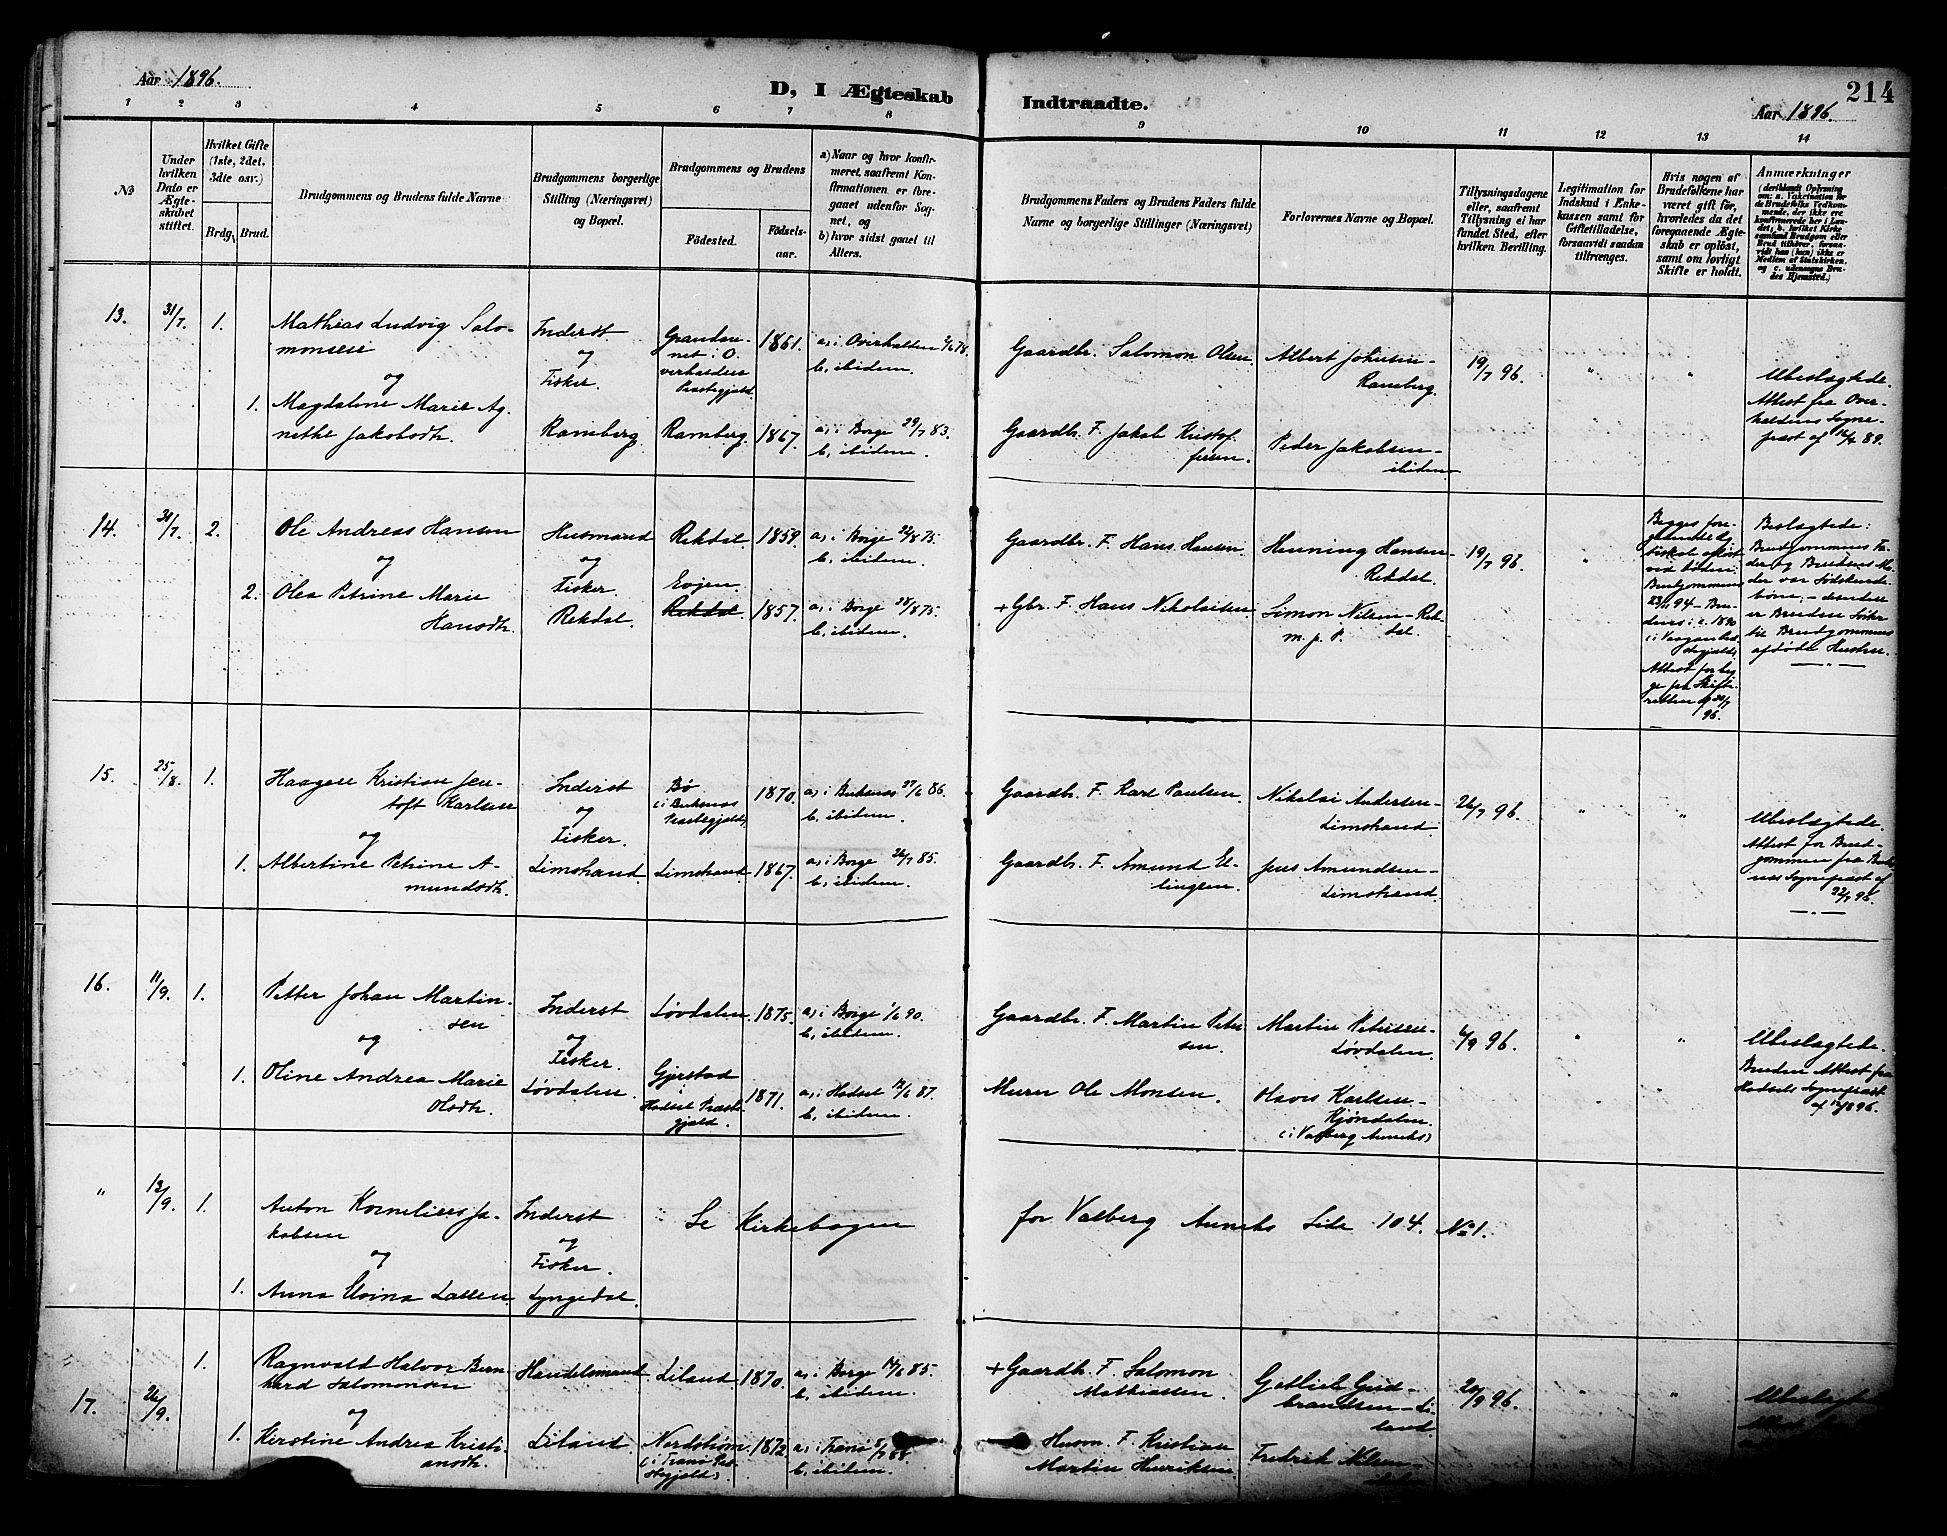 Aar 1896.
D, I Ægteskab
Indtraadte.
Aar 1896.
214
1 2 3 4 5 6 7 8 9 10 11 12 13 14
No
Under hvilken Dato er Ægteskabet stiftet.
Hvilket Gifte (1ste, 2det, 3die osv.)
Brdg. Brud.
Brudgommens og Brudens fulde Navne
Brudgommens borgerlige Stilling (Næringsvei) og Bopæl.
Brudgommens og Brudens
Födested.
Födselsaar.
a) Naar og hvor konfirmeret, saafremt Konfirmationen er foregaaet udenfor Sognet, og
b) hvor sidst gaaet til Alters.
Brudgommens Faders og Brudens Faders fulde Navne og borgerlige Stillinger (Næringsvei)
Forlovernes Navne og Bopæl.
Tillysningsdagene eller, saafremt Tillysning ei har fundet Sted, efter hvilken Bevilling.
Legitimation for Indskud i Enkekassen samt for Giftetilladelse, forsaavidt saadan tiltrænges.
Hvis nogen af Brudefolkene har været gift før, hvorledes da det foregaaende Ægteskab er oplöst, samt om lovligt Skifte er holdt.
Anmærkninger
13. 31/7. 1.
Mathias Ludvig Salomonsen
og
1. Magdalene Marie Agnethe Jakobsdh.
Inderst
og
Fisker.
Ramberg.
Overhaldens Præstegjeld.
1861.
a, i Overhalden
b, ibidem.
Ramberg. 1867.
a, i Borge 29/7 83.
b, ibidem.
Gaardbr. Salomon Olsen
Gaardb. F. Jakob Kristoffersen.
Albert Johnsen-
Ramberg.
Peder Jakobsen-
ibidem
19/7 96.
"
"
Ubeslægtede.
Attest fra Overhaldens Sognepræst af 89.
14. 31/7. 2.
Ole Andreas Hansen
og
2. Olea Petrine Marie
Hansdh.
Husmand
og
Fisker.
Rekdal.
Rekdal. 1859.
a, i Borge 22/8 75.
b, ibidem.
Evjen.
Rekdal 1857.
a, i Borge 75.
b, ibidem.
Gaardbr. F. Hans Hansen.
+Gbr. F. Hans Nikolaisen
Henning Hansen-
Rekdal.
Simon Nilsen-Rekdal.
m. p. P.
19/7 96.
"
Begges foregaaende Ægteskab opløst ved Døden;
Brudgommens 23/11 94 - Brudens i 1890
Attest for begge fra Skifteretten 96.
Beslægtede:
Brudgommens Fader og Brudens Moder var Sødskendebörn; - desuden er Bruden Søster til Brudgommens afdøde Hustru.
15. 25/8. 1.
Haagen Kristian Jentoft Karlsen
og
1. Albertine Petrine Amundsdh.
Inderst
og
Fisker.
Limstrand.
Bø
(i Buksnæs Præstegjeld)
1870.
a, i Buksnæs 27/6 86.
b, ibidem.
Limstrand. 1867.
a, i Borge 26/7 85.
b, ibidem.
Gaardbr. F. Karl Paulsen.
Gaardb. F. Amund Ellingsen.
Nikolai Andersen-
Limstrand.
Jens Amundsen-
Limstrand.
26/7 96.
"
"
Ubeslægtede.
Attest for Brudgommen fra Buksnæs Sognepræst af 22/7 96.
16. 11/9. 1.
Petter Johan Martinsen
og
1. Oline Andrea Marie
Olsdh.
Inderst
og
Fisker.
Løvdalen.
Løvdalen 1875.
a, i Borge 1/6 90.
b, ibidem.
Gjerstad
Hadsel Præstegjeld.
1871.
a, i Hadsel 12/6 87.
b, ibidem.
Gaardbr. F. Martin Petersen.
Murer Ole Monsen.
Martin Petersen-
Løvdalen.
Olaves Karlsen-
Kjöndalen.
(i Valberg Anneks)
6/9 96.
"
"
Ubeslægtede.
Bruden Attest fra Hadsels Sognepræst af 12/8 96.
" 12/9. 1.
Anton Kornelius Jakobsen
og
1. Anna Elvina Larsen.
Inderst
og
Fisker.
Lyngedal.
Se Kirkebogen
for Valberg Anneks Side 104. No 1.
17. 26/9. 1.
Ragnvald Halvor Bernhard Salomonsen
og
1. Kirstine Andrea Kristiansdh.
Handelsmand
Liland
Liland 1870.
a, i Borge 14/6 85.
b, ibidem.
Nordstrøm 1872.
(i Tranø Præstegjeld)
a, i Tranø
b, ibidem.
+Gaardb. F. Salomon
Mathiassen.
Husm. F. Kristian
Martin Henriksen
Gotlieb Guldbrandsen-Liland
Fredrik Nilsen-
20/9 96.
"
"
Ubeslægtede